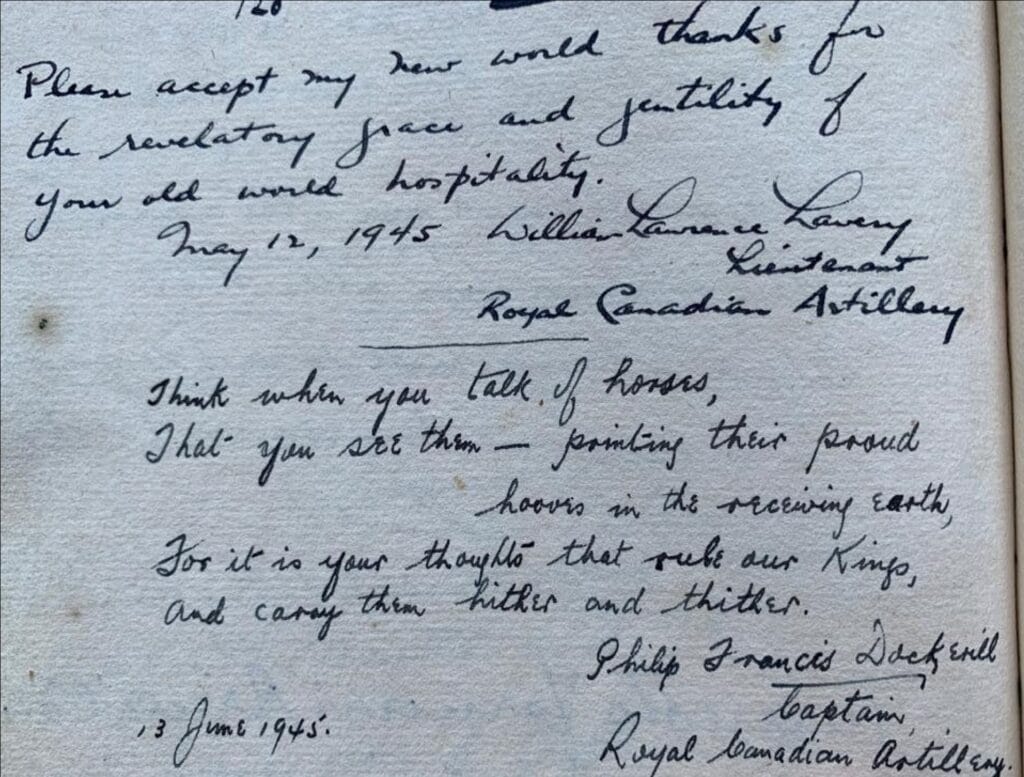 120
Please accept my new world thanks for
the revelatory grace and gentility of
your old world hospitality.
May 12, 1945 William Lawrence Lavery
Lieutenant
Royal Canadian Artillery
Think when you talk of horses,
That you see them — printing their proud
hooves in the receiving earth,
For it is your thoughts that rule our Kings,
And carry them hither and thither.
Philip Francis Dockerill
Captain,
13 June 1945.
Royal Canadian Artillery.